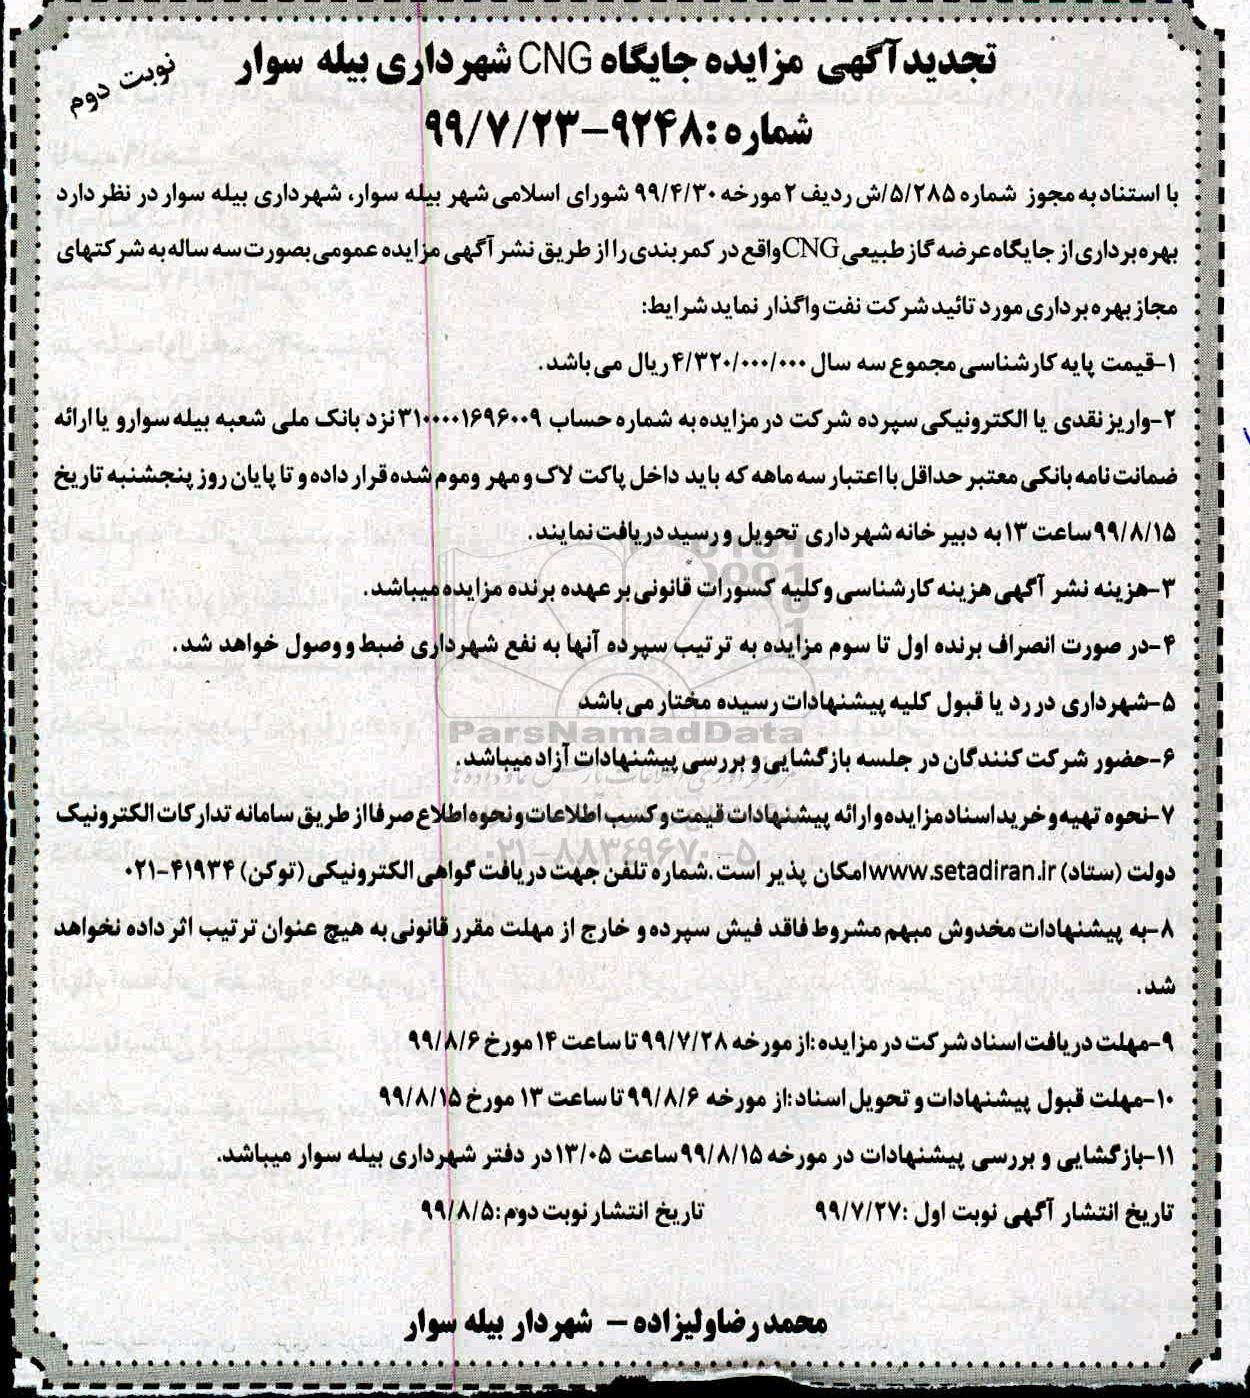 تجدیدآگهی مزایده جایگاه CNG شهرداری بیله سوار
نوبت دوم
شماره :۹۲۴۸-۹۹/۷/۲۳
با استناد به مجوز شماره ۵/۲۸۵/ش ردیف ۲ مورخه ۹۹/۴/۳۰ شورای اسلامی شهر بیله سوار، شهرداری بیله سوار در نظر دارد
بهره برداری از جایگاه عرضه گاز طبیعی CNG واقع در کمربندی را از طریق نشر آگهی مزایده عمومی بصورت سه ساله به شرکتهای
مجاز بهره برداری مورد تائید شرکت نفت واگذار نماید شرایط:
۱-قیمت پایه کارشناسی مجموع سه سال ۴/۳۲۰/۰۰۰/۰۰۰ ریال می باشد.
۲-واریز نقدی یا الکترونیکی سپرده شرکت در مزایده به شماره حساب ۳۱۰۰۰۰۱۶۹۶۰۰۹ نزد بانک ملی شعبه بیله سوارو یا ارائه
ضمانت نامه بانکی معتبر حداقل با اعتبار سه ماهه که باید داخل پاکت لاک و مهر وموم شده قرار داده و تا پایان روز پنجشنبه تاریخ
۹۹/۸/۱۵ساعت ۱۳ به دبیر خانه شهرداری تحویل و رسید دریافت نمایند.
۳-هزینه نشر آگهی هزینه کارشناسی وکلیه کسورات قانونی بر عهده برنده مزایده میباشد.
۴-در صورت انصراف برنده اول تا سوم مزایده به ترتیب سپرده آنها به نفع شهرداری ضبط و وصول خواهد شد.
۵-شهرداری در رد یا قبول کلیه پیشنهادات رسیده مختار می باشد
ParsNamadData
۶-حضور شرکت کنندگان در جلسه بازگشایی و بررسی پیشنهادات آزاد میباشد.
۷-نحوه تهیه و خرید اسناد مزایده و ارائه پیشنهادات قیمت و کسب اطلاعات و نحوه اطلاع صرفا از طریق سامانه تدارکات الکترونیک
۰۲۱-۸۸۳۴۹۶۷۰-۵
دولت (ستاد) www.setadiran.ir امکان پذیر است.شماره تلفن جهت دریافت گواهی الکترونیکی (توکن) ۴۱۹۳۴-۰۲۱
۸-به پیشنهادات مخدوش مبهم مشروط فاقد فیش سپرده و خارج از مهلت مقرر قانونی به هیچ عنوان ترتیب اثر داده نخواهد
شد.
۹-مهلت دریافت اسناد شرکت در مزایده :از مورخه ۹۹/۷/۲۸ تا ساعت ۱۴ مورخ ۹۹/۸/۶
۱۰-مهلت قبول پیشنهادات و تحویل اسناد :از مورخه ۹۹/۸/۶ تا ساعت ۱۳ مورخ ۹۹/۸/۱۵
۱۱-بازگشایی و بررسی پیشنهادات در مورخه ۹۹/۸/۱۵ساعت ۱۳/۰۵ در دفتر شهرداری بیله سوار میباشد.
تاریخ انتشار آگهی نوبت اول :۹۹/۷/۲۷ تاریخ انتشار نوبت دوم :۹۹/۸/۵
محمد رضا ولیزاده - شهردار بیله سوار